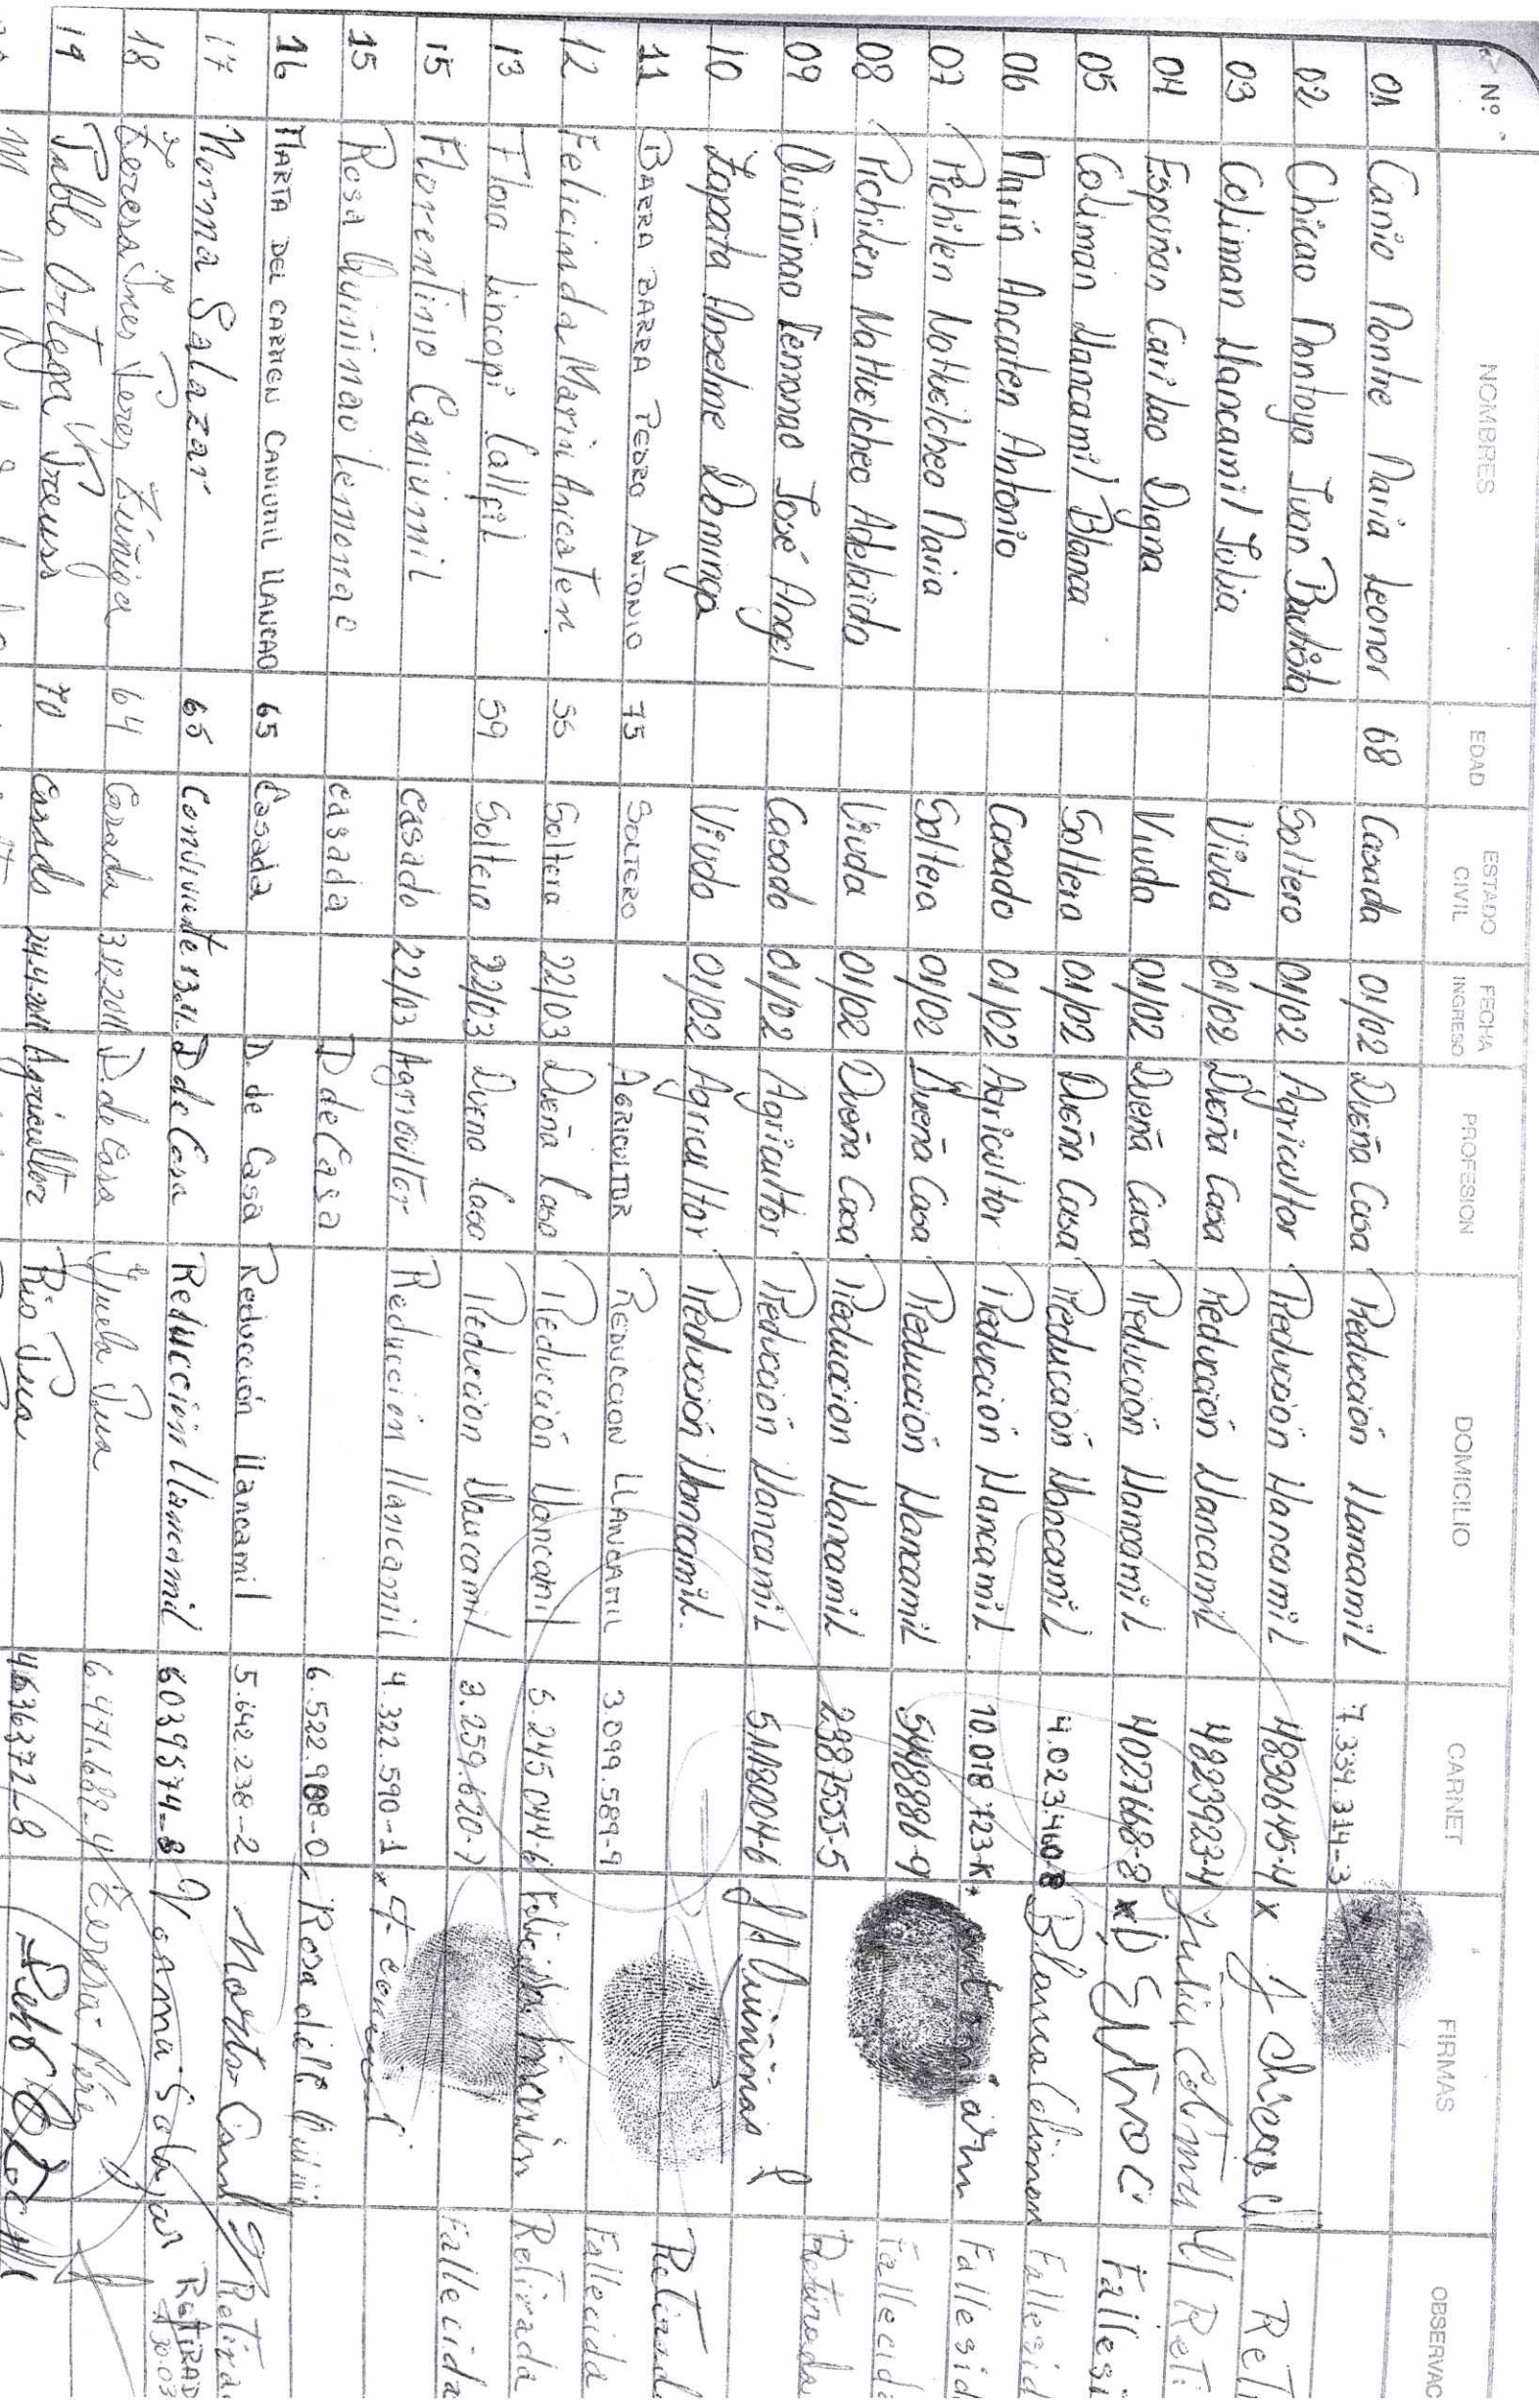 Nº NOMBRES EDAD ESTADO CIVIL FECHA INGRESO PROFESION DOMICILIO CARNET FIRMAS OBSERVAC
01 Canio Montre Maria Leonor 68 Casada 01/02 Dueña Casa Reducción Llancamil 7.334.314-3
02 Chicao Montoya Juan Bautista Soltero 01/02 Agricultor Reducción Llancamil 4830645-4 x J Chicao M Reti
03 Coliman Llancamil Julia Viuda 01/02 Dueña Casa Reducción Llancamil 4823923-4 Julia Coliman Ll Reti
04 Espuñan Carilao Digna Viuda 01/02 Dueña Casa Reducción Llancamil 4027668-8 x D Fallesi
05 Coliman Llancamil Blanca Soltera 01/02 Dueña Casa Reducción Llancamil 4.023.460-8 Blanca Coliman Fallesid
06 Marín Ancaten Antonio Casado 01/02 Agricultor Reducción Llancamil 10.018.723-K Fallesid
07 Pichilen Nathuelcheo Maria Soltera 01/02 Dueña Casa Reducción Llancamil 5448886-9 Fallecid
08 Pichilen Nathuelcheo Adelaida Viuda 01/02 Dueña Casa Reducción Llancamil 2987555-5 Retirada
09 Quiñinao Lemonao José Angel Casado 01/02 Agricultor Reducción Llancamil 5118004-6 JA Quiñinao L
10 Zapata Anselme Dominga Viudo 01/02 Agricultor Reducción Llancamil. Retirad
11 BARRA BARRA PEDRO ANTONIO 75 SOLTERO AGRICULTOR REDUCCION LLANCAMIL 3.099.589-9 Fallecida
12 Felicinda Marin Ancaten 55 Soltera 22/03 Dueña Casa Reducción Llancamil 5.245.044-6 Felicinda Marin Retirada
13 Flora Lincopi Callfil 59 Soltera 22/03 Dueña Casa Reduccion Llancamil 3.259.670-7 Fallecida
15 Florentino Caniumil Casado 22/03 Agricultor Reducción Llancamil 4.322.590-1 x F
15 Rosa Quiñinao Lemonao casada D de Casa 6.522.988-0 x Rosa
16 MARTA DEL CARMEN CANIUMIL LLANCAO 65 Casada D. de Casa Reducción Llancamil 5.642.238-2 Marta Retirada
17 Norma Salazar 65 Conviviente 13.11. D de Casa Reducción Llancamil 6039574-8 Norma Salazar RETIRAD 30.03
18 Teresa Ines Perez Zúñiga 64 Casada 3.12.2011 D. de Casa Huela Tua 6.471.689-4 Teresa Pérez
19 Pablo Ortega 70 Casado 24.4.2011 Agricultor Rio Tua 4636372-8